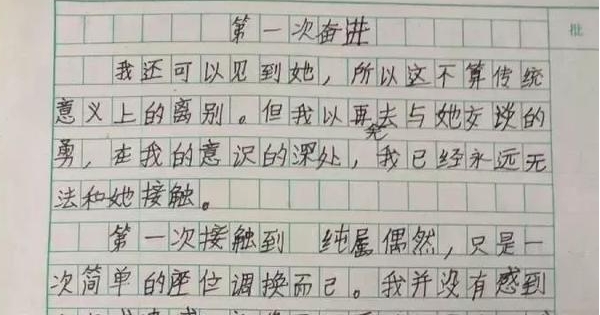 第一次奋进
批
我还可以见到她，所以这不算传统
意义上的离别。但我以再去与她交谈的
勇，在我的意识的深处，我已经永远无
法和她接触。
第一次接触到 纯属偶然，只是一
次简单的座位调换而已。我并没有感到